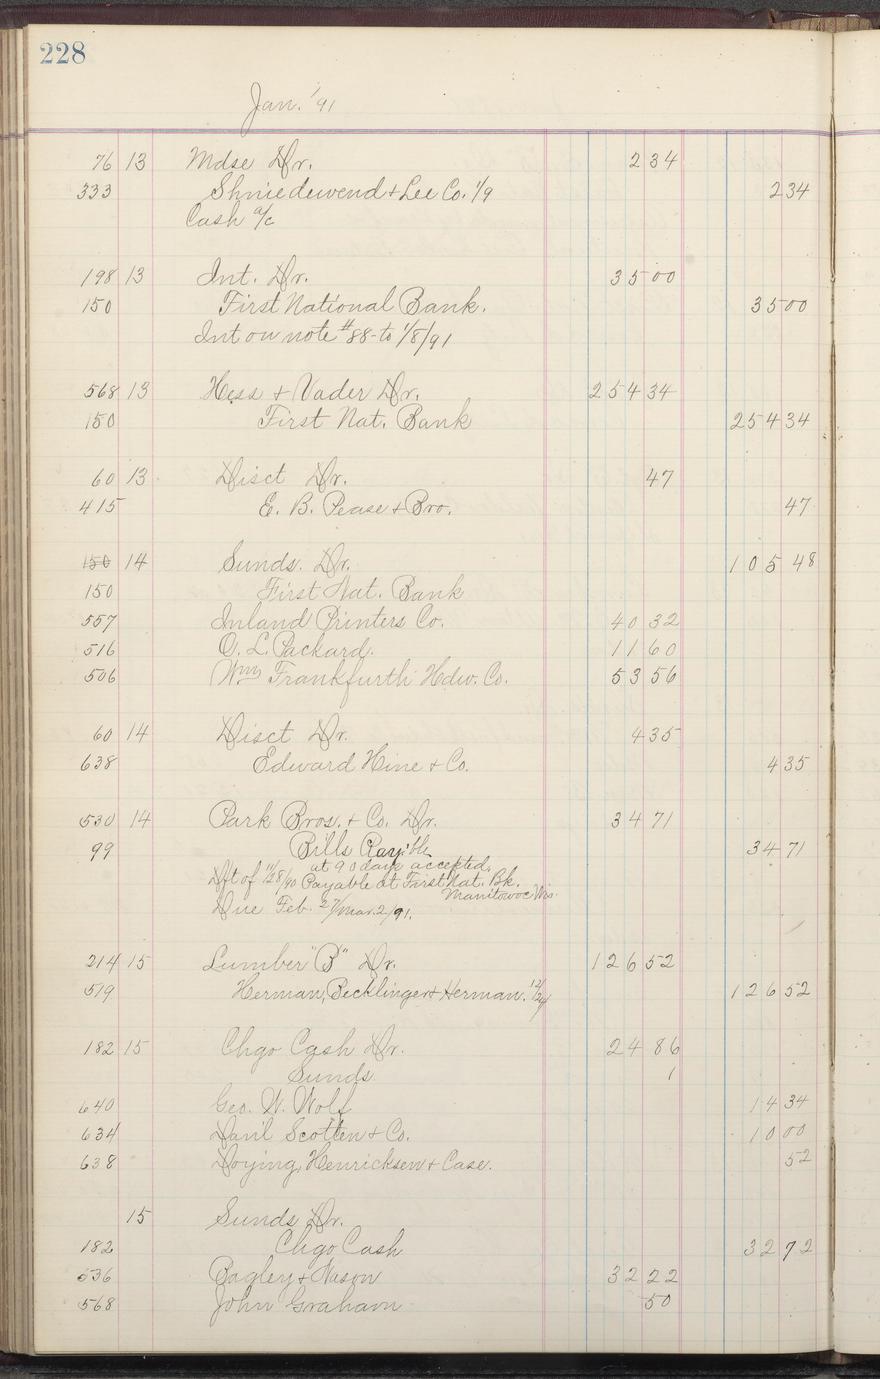 228
Jan. '91
76 13 Mdse Dr. 2 34
333 Shniedewend & Lee Co. 1/9 2 34
Cash a/c
198 13 Int. Dr. 35 00
150 First National Bank. 35 00
Int on note #88 - to 1/8/91
568 13 Hess & Vader Dr. 254 34
150 First Nat. Bank 254 34
60 13 Disct Dr. 47
415 E. B. Pease & Bro. 47
150 14 Sunds. Dr. 105 48
150 First Nat. Bank
557 Inland Printers Co. 40 32
516 O. L. Packard. 11 60
506 Wm Frankfurth Hdw. Co. 53 56
60 14 Disct Dr. 4 35
638 Edward Hine & Co. 4 35
530 14 Park Bros. & Co. Dr. 34 71
99 Bills Payible 34 71
at 90 days accepted.
Dft of 11/28/90 Payable at First Nat. Bk.
Manitowoc Wis.
Due Feb. 27/Mar. 2/91.
214 15 Lumber "B" Dr. 126 52
519 Herman, Becklinger & Herman. 12/24 126 52
182 15 Chgo Cash Dr. 24 86
Sunds 1
640 Geo. W. Wolf 14 34
634 Dan'l Scotten & Co. 10 00
638 Doying, Henricksen & Case. 52
15 Sunds Dr.
182 Chgo Cash 32 72
536 Bagley & Nason 32 22
568 John Graham 50